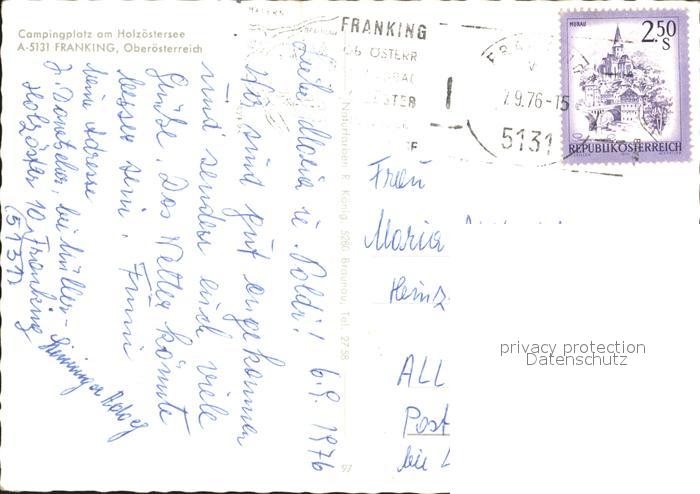 Campingplatz am Holzöstersee
A-5131 FRANKING, Oberösterreich
Liebe Maria u. Poldi! 6.9.1976
Wir sind gut angekommen
und senden euch viele
Grüße. Das Wetter könnte
besser sein.
meine Adresse
bei Müller-
Holzöster 10, Franking
(5131)
Naturfarben R. König, 5280 Braunau, Tel. 27 58
97
FRANKING
OB ÖSTERR
7.9.76-15
5131
MURAU
2.50
S
REPUBLIK ÖSTERREICH
Frau
Maria
Heinz
ALL
Post
bei
privacy protection
Datenschutz